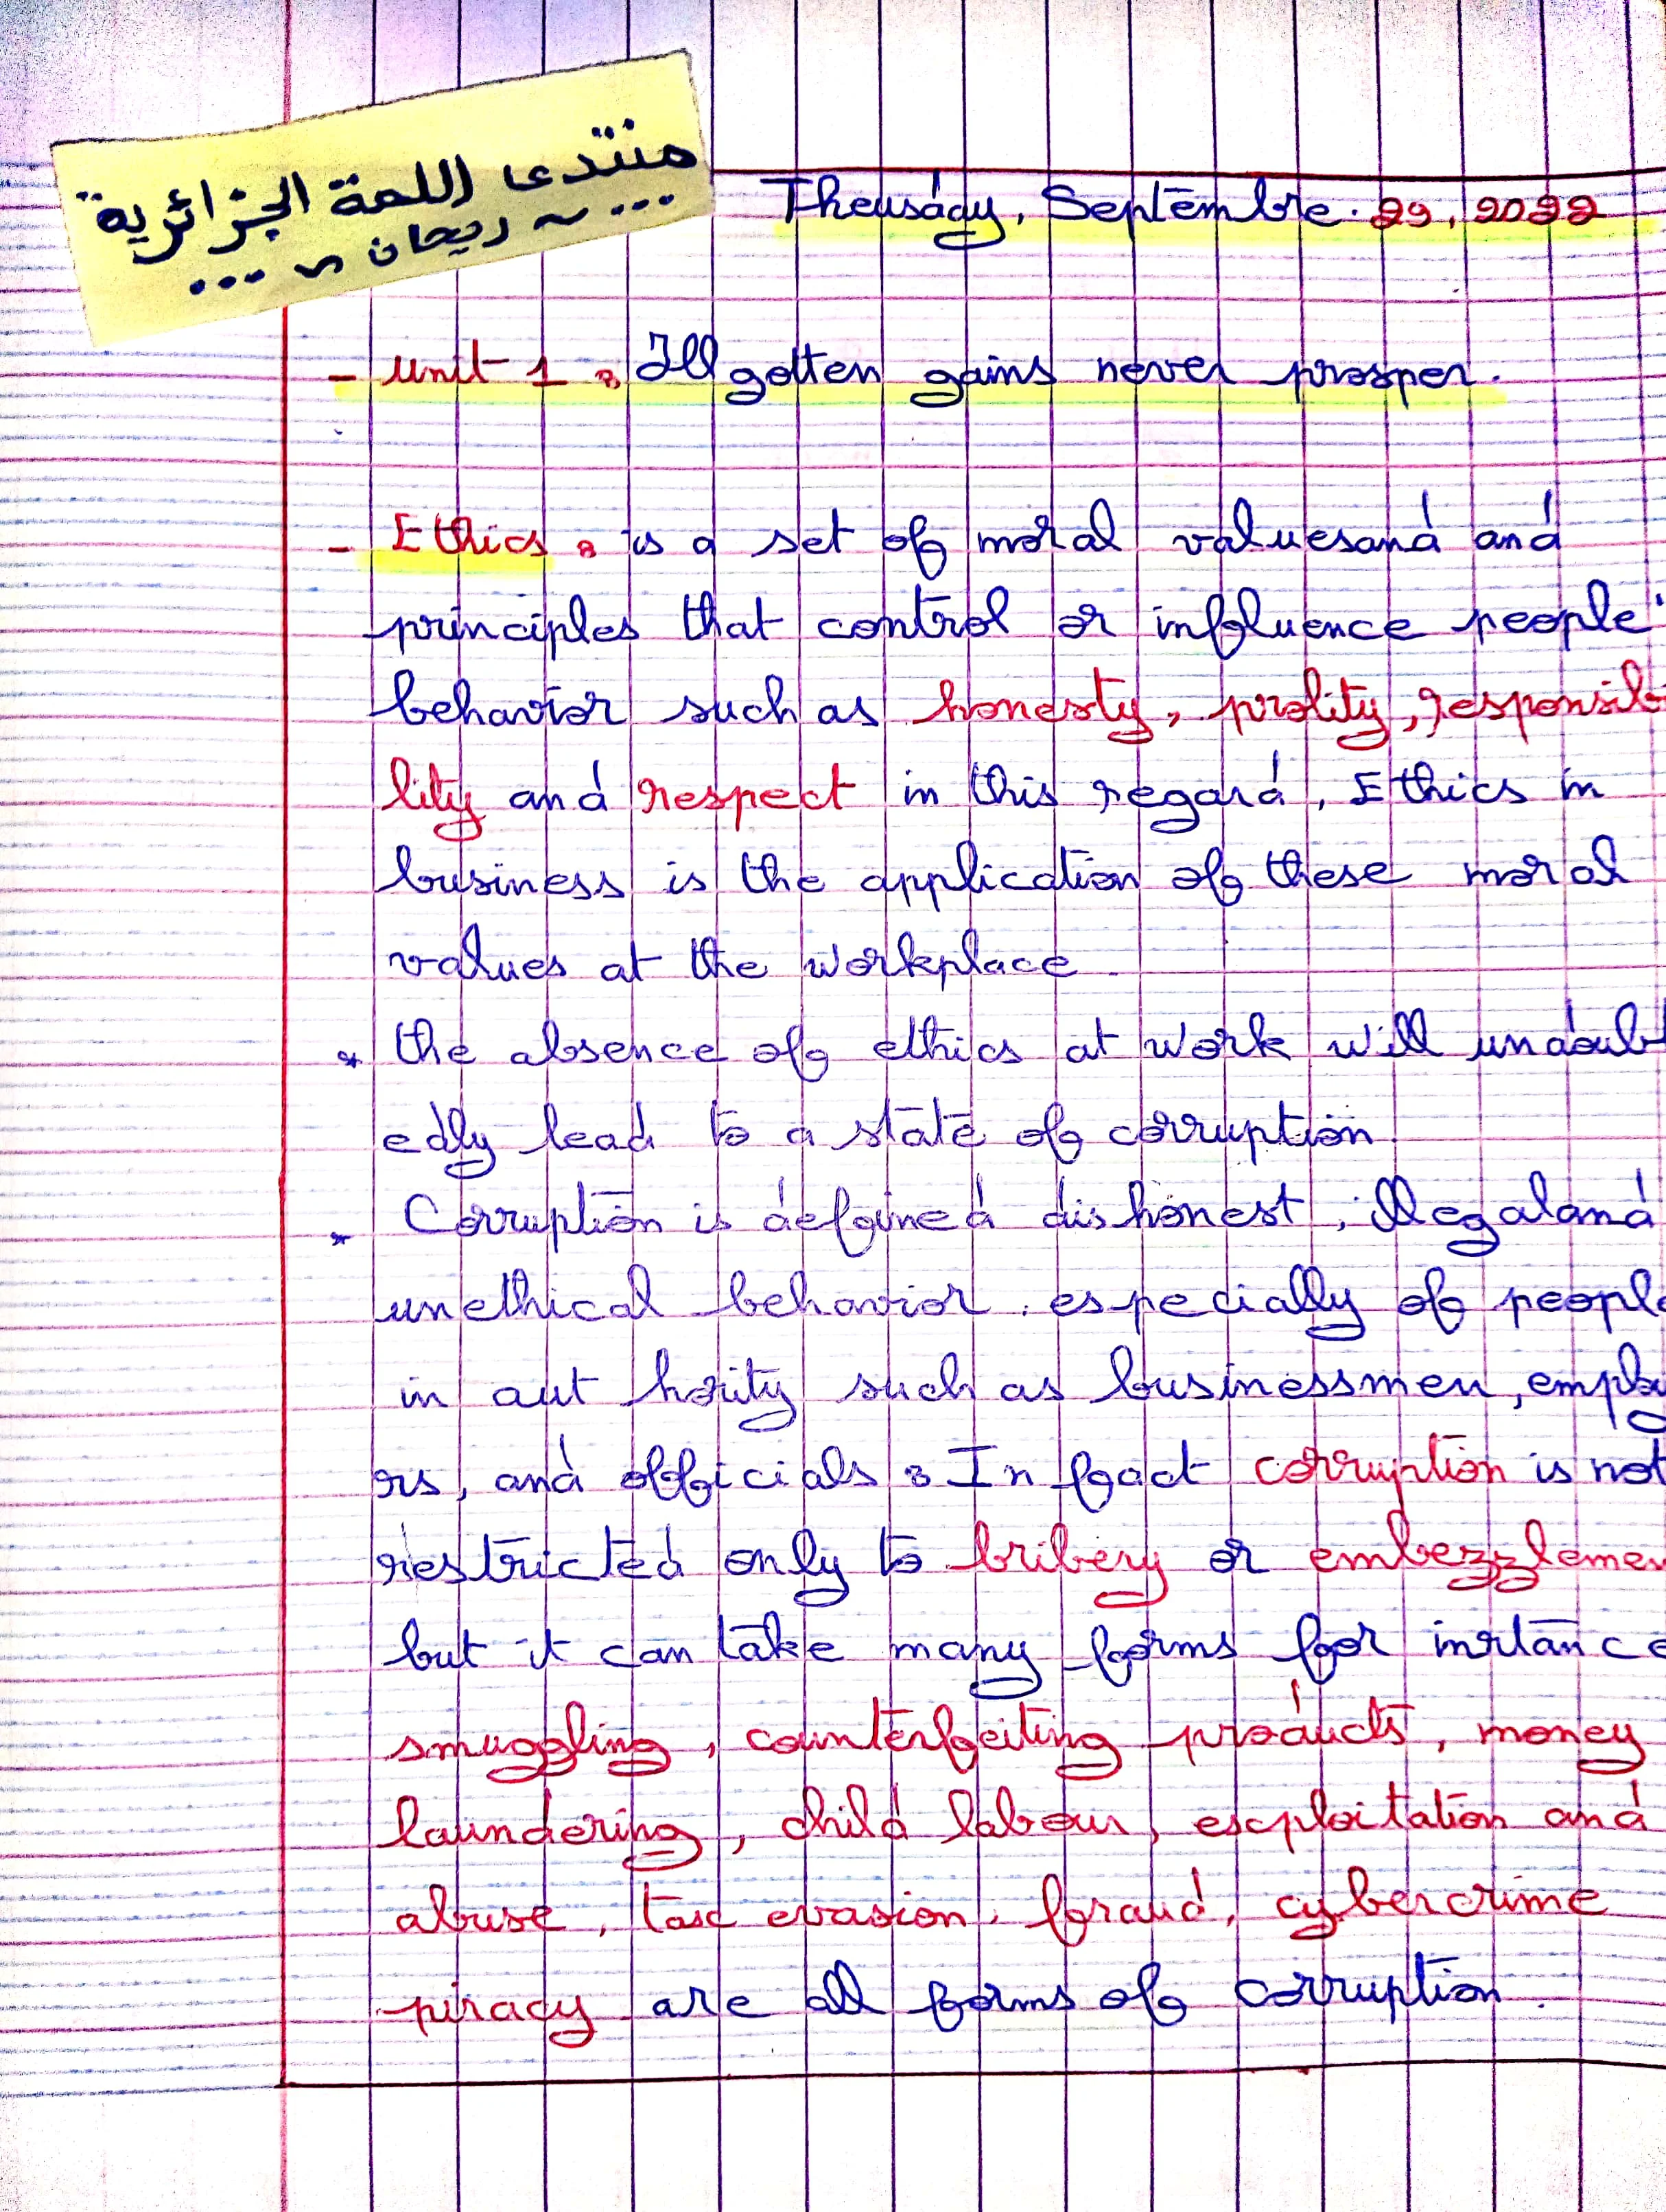 منتدى اللمة الجزائرية
... ~ ريحان ~ ...
Theusday, Septembre. 29, 2022
- Unit 1 : Ill gotten gains never prosper.
- Ethics : is a set of moral valuesand and
principles that control or influence people'
behavior such as honesty, prolity, responsib
lity and respect in this regard, Ethics in
business is the application of these moral
values at the workplace
* the absence of ethics at work will undoubt
edly lead to a state of corruption.
* Corruption is defined dishonest, illegaland
unethical behavior. especially of people
in aut hority such as businessmen, employ
rs, and officials : In fact corruption is not
restricted only to bribery or embezzlemen
but it can take many forms for instance
smuggling, counterfeiting products, money
laundering, child labour, exploitation and
abuse, tax evasion, fraud, cybercrime
piracy are all forms of corruption.